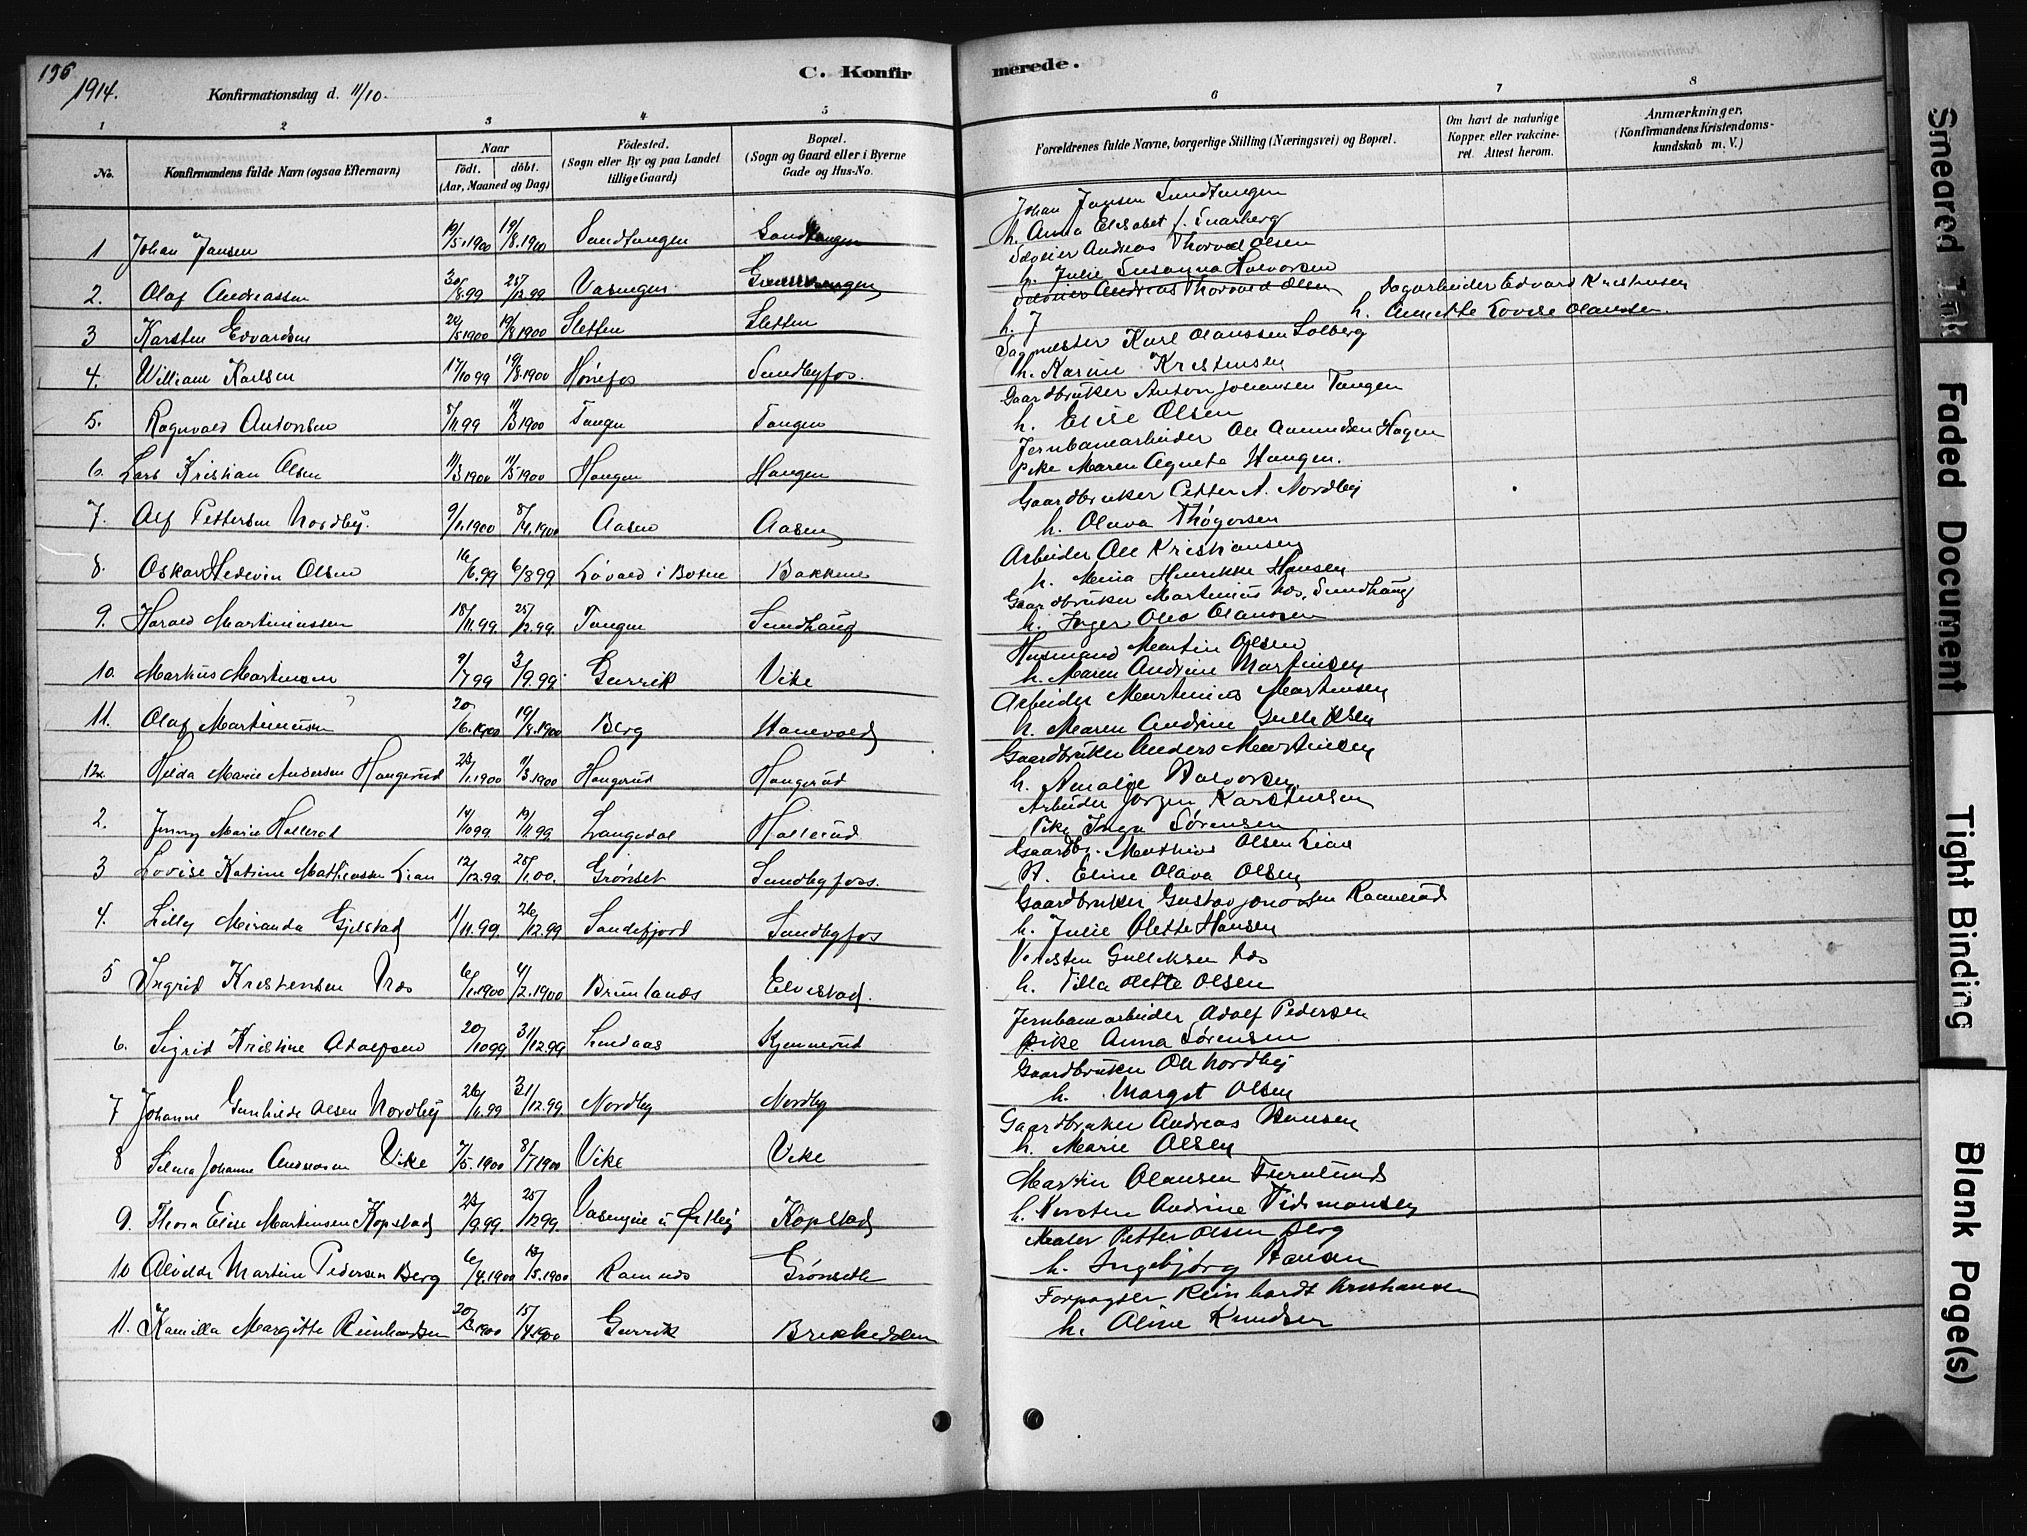 136
1914.
Konfirmationsdag d. 11/10.
C. Konfir
merede.
1 2 3 4 5 6 7 8
No.
Konfirmandens fulde Navn (ogsaa Efternavn)
Naar
født. døbt.
(Aar, Maaned og Dag)
Fødested.
(Sogn eller By og paa Landet
tillige Gaard)
Bopæl.
(Sogn og Gaard eller i Byerne
Gade og Hus-No.
Forældrenes fulde Navne, borgerlige Stilling (Næringsvei) og Bopæl.
Om havt de naturlige
Kopper, eller vakcine-
ret. Attest herom.
Anmærkninger,
(Konfirmandens Kristendoms-
kundskab m. V.)
1 Johan Jansen 19/5.1900 19/8.1900 Sandtangen Sandtangen
Johan Jansen Sandtangen
h. Anna Elisabet f. Snarberg
2. Olaf Andreassen 30/8.99 25/12.99 Vasengen
Andreas Thorvald Olsen
h. Julie Susanna Halvorsen
3 Karsten Edvardsen 19/8 1900 Sletten Sletten
Andreas Thorvald Olsen
Sagarbeider Edvard Kristensen
h. J
h. Annette Lovise Olaussen.
4. William Karlsen 17/10 99 19/8.1900 Hønefos Sundbyfos.
Sagmester Karl Olaussen Solberg
h. Karine Kristensen
5. Ragnvald Antonsen 8/11.99 11/3 1900 Tangen Tangen
Gaardbruker Anton Johansen Tangen
h. Elise Olsen
6. Lars Kristian Olsen 11/3 1900 11/5 1900 Haugen Haugen
Jernbanearbeider Ole Amundsen Hagen
Pike Maren Agnete Haugen.
7. Alf Pettersen Nordby. 9/1.1900 8/4.1900 Aasen Aasen
Gaardbruker Petter A. Nordby
h. Olava Thøgersen
8. Oskar Hedevin Olsen 16/6.99 6/8 99 Løvald i Botne Bakkene
Arbeider Ole Kristiansen
h. Mina Henrikke Hansen
9. Harald Martiniussen 18/11.99. 25/12.99. Tangen Sundhaug
Gaardbruker Martinius Sundhaug
h. Inger Olea Olaussen
10. Markus Martinsen 9/7 99 3/9.99. Gurrik Vike
Husmand Martin Olsen
h. Maren Andrine Martinsen
11. Olaf Martiniussen 20/6.1900 19/8.1900 Berg Hanevold
Arbeider Martinius Martinsen
h. Maren Andrine Gulliksen
12. Hilda Marie Andersen Haugerud 23/1.1900 11/3.1900 Haugerud Haugerud
Gaardbruker Anders Martinsen
h. Amalie Halvorsen
2. Jenny Marie Hallerud 14/10 99 19/11.99 Langedal Hallerud
Arbeider Jørgen Karstensen
Pike Inga Sørensen
3 Lovise Katrine Mathiassen Lian 12/12.99. 25/1.00. Grønset Sundbyfoss.
Gaardbr. Mathias Olsen Lian
h. Eline Olava Olsen
4. Lilly Miranda Gjelstad 1/11.99. 26/12.99 Sandefjord Sundbyfos
h. Julie Olette Hansen
5 Ingrid Kristensen Næs 6/1.1900 4/2.1900 Brunlanes Elvestad.
Gulliksen Næs
h. Tilla Olette Olsen
6. Sigrid Kristine Adolfsen 20/10 99. 31/12.99. Lindaas Kjennerud
Jernbanearbeider Adolf Pedersen
Pike Anna Sørensen
7 Johanne Gunhilde Olsen Nordby 26/11.99 31/12.99. Nordby Nordby
Gaardbruker Ole Nordby
h. Margit Olsen
8 Selma Johanne Andreasen Vike 7/5.1900 8/7 1900 Vike Vike
Gaardbruker Andreas Hansen
h. Marie Olsen
9. Thora Elise Martinsen Kopstad 23/9.99. Kopstad
Martin Olausen
h. Andrine
10 Alvilde Martine Pedersen Berg 6/4.1900 13/5.1900 Ramnes Grønseth
Maler Petter Olsen Berg
h. Ingebjørg Hansen
11. Kamilla Margitte Reinhardtsen 15/4.1900 Gurrik
Forpagter Reinhardt Kristiansen
h. Aline Knudsen
Smeared Ink
Faded Document
Tight Binding
Blank Page(s)